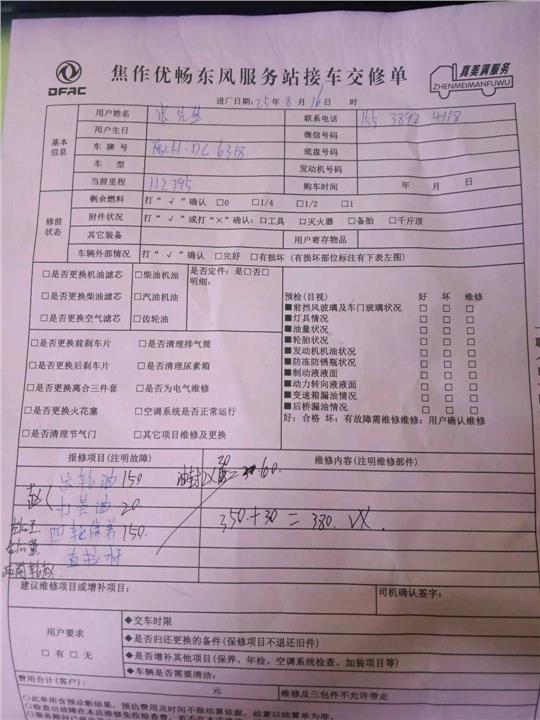 DFAC
焦作优畅东风服务站接车交修单
真美满服务
ZHENMEIMANFUWU
进厂日期:25年8月16日 时
基本信息
用户姓名 联系电话 155 3892 4118
用户生日 微信号码
车牌号 豫H·DC6318 底盘号码
车型 发动机号码
当前里程 112795 购车时间 年 月 日
修前状态
剩余燃料 打“√”确认 □0 □1/4 □1/2 □1
附件状况 打“√”或打“×”确认:□工具 □灭火器 □备胎 □千斤顶
其它装备 用户寄存物品
车辆外部情况 打“√”确认 □完好 □有损坏(有损坏部位标注有下表左图)
□是否更换机油滤芯 □柴油机油 是否定件:是□否□
明细:
□是否更换柴油滤芯 □汽油机油
□是否更换空气滤芯 □齿轮油
预检(目视) 好 坏 维修
■前挡风玻璃及车门玻璃状况 □ □ □
■灯具情况 □ □ □
■油量状况 □ □ □
■轮胎状况 □ □ □
■发动机机油状况 □ □ □
■防冻防锈瓶状况 □ □ □
■制动液液面 □ □ □
■动力转向液液面 □ □ □
■变速箱漏油情况 □ □ □
■后桥漏油情况 □ □ □
好:合格 坏:有故障需维修维修:用户确认维修
□是否更换前刹车片 □是否清理排气筒
□是否更换后刹车片 □是否清理尿素箱
□是否更换离合三件套 □是否为电气维修
□是否更换火花塞 □空调系统是否正常运行
□是否清理节气门 □其它项目维修及更换
报修项目(注明故障) 维修内容(注明维修部件)
齿轮油 150 油封2X
30
60.
打黄油 20.
350+30=380.
四轮保养 150.
直拉杆
建议维修项目或增补项目: 司机确认签字:
用户要求
□有 □无
◆交车时限
◆是否归还更换的备件(保修项目不退还旧件)
◆是否增补其他项目(保养、年检、空调系统检查、加装项目等)
◆车辆是否需要清洁:
费用合计(客户): 元 维修及三包件不允许带走
○此单所含预诊断结果,预估费用及时间不做结算依据,结算以结算单为准。